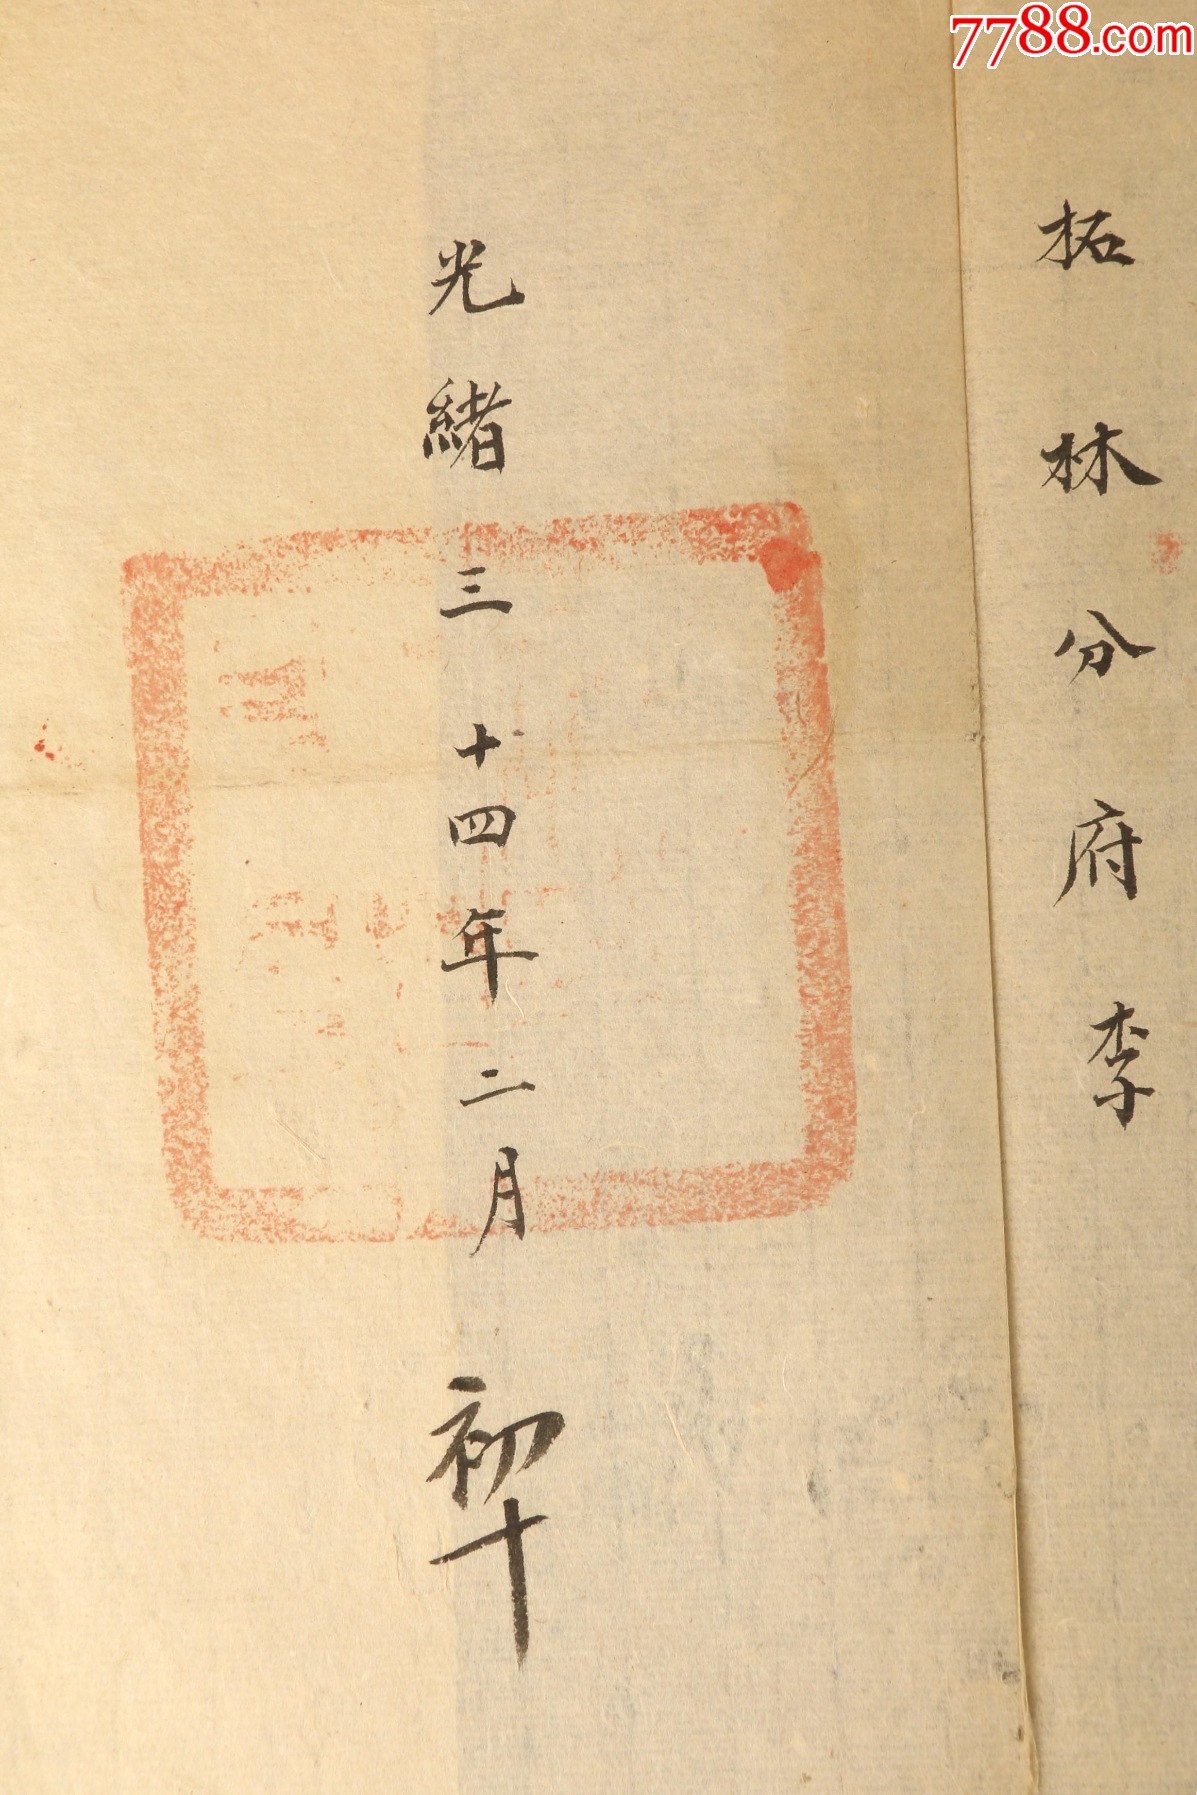 7788.com
柘林分府李
光緒三十四年二月初十